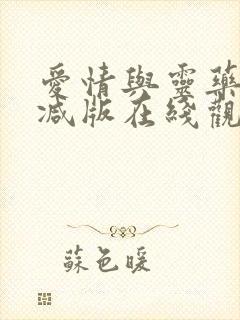 愛情與靈藥
减版在綫觀
蘇色暖